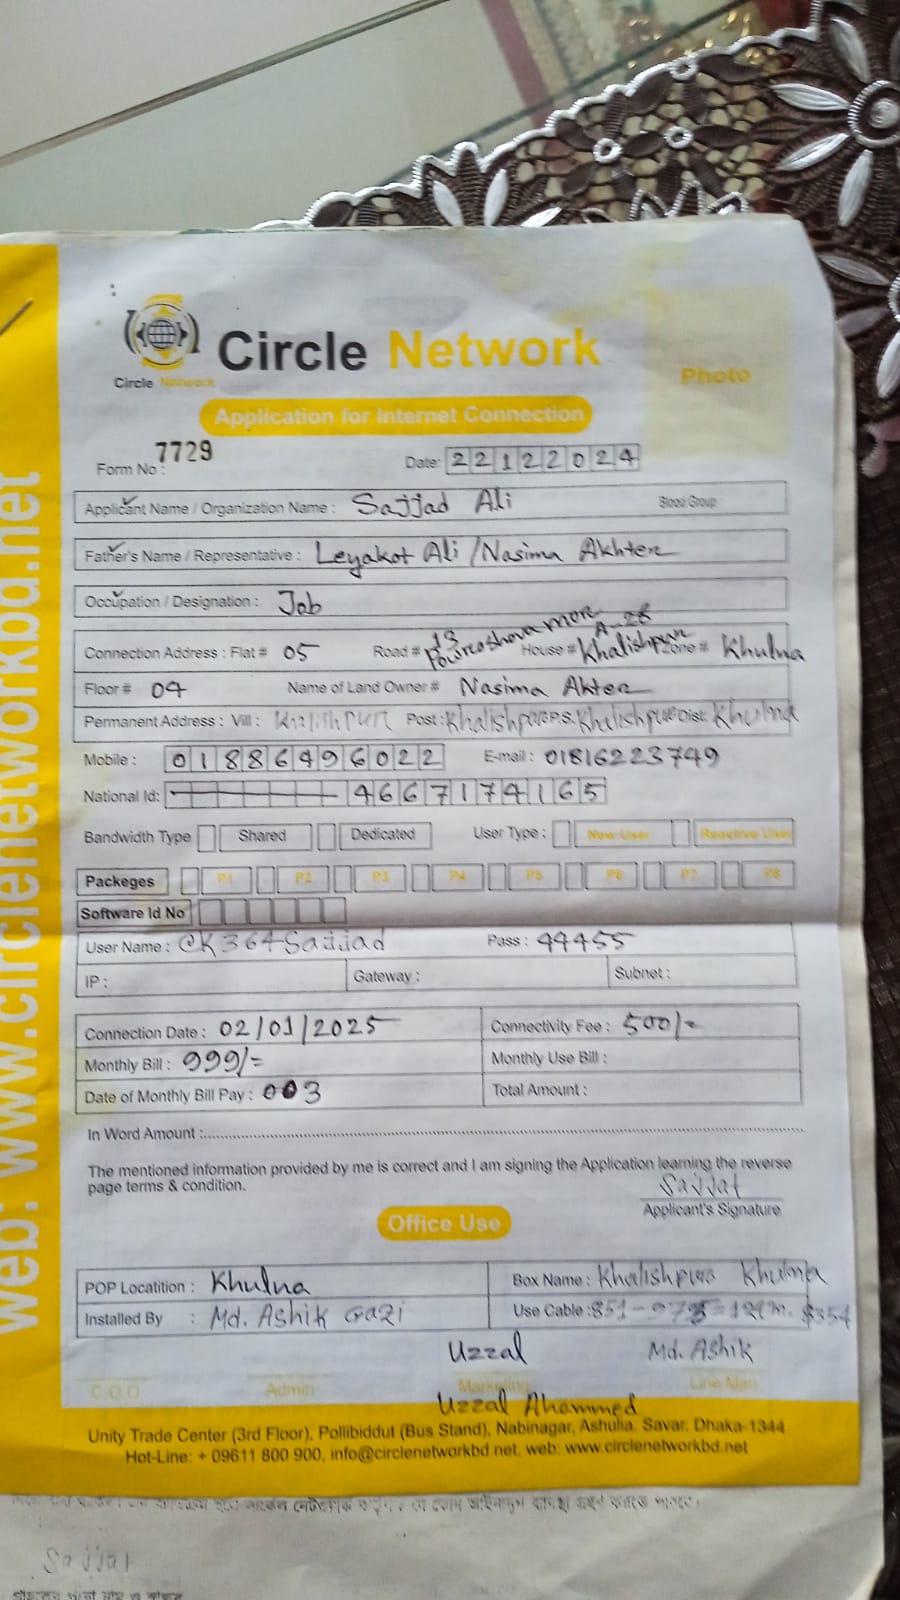 web: www.circlenetworkbd.net
Circle Network
Circle Network
Photo
Application for Internet Connection
Form No : 7729
Date: 22122024
Applicant Name / Organization Name : Sajjad Ali Blood Group
Father's Name / Representative : Leyakot Ali / Nasima Akhter
Occupation / Designation : Job
Connection Address : Flat # 05 Road # 13 House # A-28 Khalishpur Zone # Khulna
Floor # 04 Name of Land Owner # Nasima Akter
Permanent Address : Vill : Khalishpur Post : Khalishpur P.S. Khalishpur Dist: Khulna
Mobile : 01886496022 E-mail : 01816223749
National Id: 4667174165
Bandwidth Type Shared Dedicated User Type : New User Reactive User
Packeges P1 P2 P3 P4 P5 P6 P7 P8
Software Id No
User Name : CK364Sajjad Pass : 44455
IP : Gateway : Subnet :
Connection Date : 02/01/2025 Connectivity Fee : 500/=
Monthly Bill : 999/= Monthly Use Bill :
Date of Monthly Bill Pay : 003 Total Amount :
In Word Amount :
The mentioned information provided by me is correct and I am signing the Application learning the reverse
page terms & condition.
Sajjat
Applicant's Signature
Office Use
POP Locatition : Khulna Box Name : Khalishpur Khulna
Installed By : Md. Ashik Gazi Use Cable :
Uzzal Md. Ashik
C.O.O Admin Marketing Line Man
Uzzal Ahammed
Unity Trade Center (3rd Floor), Pollibiddut (Bus Stand), Nabinagar, Ashulia, Savar, Dhaka-1344
Hot-Line: + 09611 800 900, info@circlenetworkbd.net, web: www.circlenetworkbd.net
Sajjal